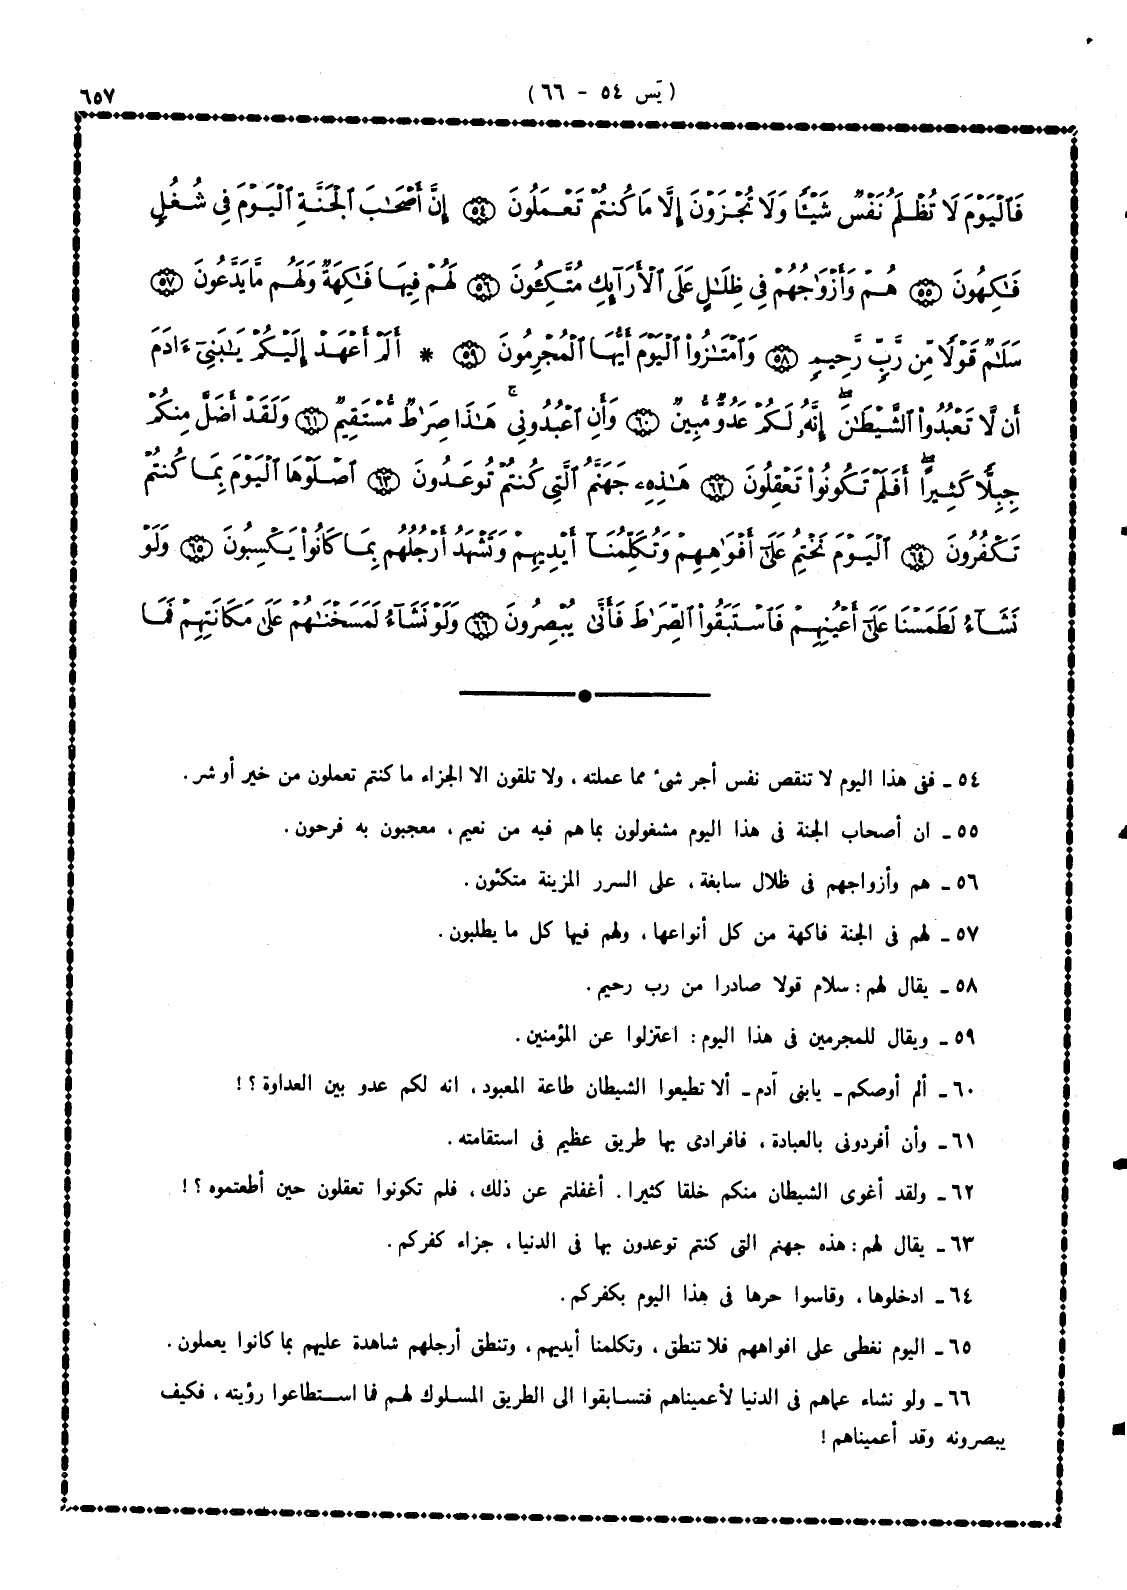 (يَس ٥٤ - ٦٦)
٦٥٧
فَٱلْيَوْمَ لَا تُظْلَمُ نَفْسٌ شَيْـًٔا وَلَا تُجْزَوْنَ إِلَّا مَا كُنتُمْ تَعْمَلُونَ ٥٤ إِنَّ أَصْحَـٰبَ ٱلْجَنَّةِ ٱلْيَوْمَ فِى شُغُلٍ
فَـٰكِهُونَ ٥٥ هُمْ وَأَزْوَٰجُهُمْ فِى ظِلَـٰلٍ عَلَى ٱلْأَرَآئِكِ مُتَّكِـُٔونَ ٥٦ لَهُمْ فِيهَا فَـٰكِهَةٌ وَلَهُم مَّا يَدَّعُونَ ٥٧
سَلَـٰمٌ قَوْلًا مِّن رَّبٍّ رَّحِيمٍ ٥٨ وَٱمْتَـٰزُوا۟ ٱلْيَوْمَ أَيُّهَا ٱلْمُجْرِمُونَ ٥٩ * أَلَمْ أَعْهَدْ إِلَيْكُمْ يَـٰبَنِىٓ ءَادَمَ
أَن لَّا تَعْبُدُوا۟ ٱلشَّيْطَـٰنَ ۖ إِنَّهُۥ لَكُمْ عَدُوٌّ مُّبِينٌ ٦٠ وَأَنِ ٱعْبُدُونِى ۚ هَـٰذَا صِرَٰطٌ مُّسْتَقِيمٌ ٦١ وَلَقَدْ أَضَلَّ مِنكُمْ
جِبِلًّا كَثِيرًا ۖ أَفَلَمْ تَكُونُوا۟ تَعْقِلُونَ ٦٢ هَـٰذِهِۦ جَهَنَّمُ ٱلَّتِى كُنتُمْ تُوعَدُونَ ٦٣ ٱصْلَوْهَا ٱلْيَوْمَ بِمَا كُنتُمْ
تَكْفُرُونَ ٦٤ ٱلْيَوْمَ نَخْتِمُ عَلَىٰٓ أَفْوَٰهِهِمْ وَتُكَلِّمُنَآ أَيْدِيهِمْ وَتَشْهَدُ أَرْجُلُهُم بِمَا كَانُوا۟ يَكْسِبُونَ ٦٥ وَلَوْ
نَشَآءُ لَطَمَسْنَا عَلَىٰٓ أَعْيُنِهِمْ فَٱسْتَبَقُوا۟ ٱلصِّرَٰطَ فَأَنَّىٰ يُبْصِرُونَ ٦٦ وَلَوْ نَشَآءُ لَمَسَخْنَـٰهُمْ عَلَىٰ مَكَانَتِهِمْ فَمَا
٥٤ ـ ففى هذا اليوم لا تنقص نفس أجر شىء مما عملته ، ولا تلقون الا الجزاء ما كنتم تعملون من خير أو شر .
٥٥ ـ ان أصحاب الجنة فى هذا اليوم مشغولون بما هم فيه من نعيم ، معجبون به فرحون .
٥٦ ـ هم وأزواجهم فى ظلال سابغة ، على السرر المزينة متكئون .
٥٧ ـ لهم فى الجنة فاكهة من كل أنواعها ، ولهم فيها كل ما يطلبون .
٥٨ ـ يقال لهم : سلام قولا صادرا من رب رحيم .
٥٩ ـ ويقال للمجرمين فى هذا اليوم : اعتزلوا عن المؤمنين .
٦٠ ـ ألم أوصكم ـ يابنى آدم ـ ألا تطيعوا الشيطان طاعة المعبود ، انه لكم عدو بين العداوة ؟ !
٦١ ـ وأن أفردونى بالعبادة ، فافرادى بها طريق عظيم فى استقامته .
٦٢ ـ ولقد أغوى الشيطان منكم خلقا كثيرا . أغفلتم عن ذلك ، فلم تكونوا تعقلون حين أطعتموه ؟ !
٦٣ ـ يقال لهم : هذه جهنم التى كنتم توعدون بها فى الدنيا ، جزاء كفركم .
٦٤ ـ ادخلوها ، وقاسوا حرها فى هذا اليوم بكفركم .
٦٥ ـ اليوم نغطى على افواههم فلا تنطق ، وتكلمنا أيديهم ، وتنطق أرجلهم شاهدة عليهم بما كانوا يعملون .
٦٦ ـ ولو نشاء عماهم فى الدنيا لأعميناهم فتسابقوا الى الطريق المسلوك لهم فما استطاعوا رؤيته ، فكيف
يبصرونه وقد أعميناهم !